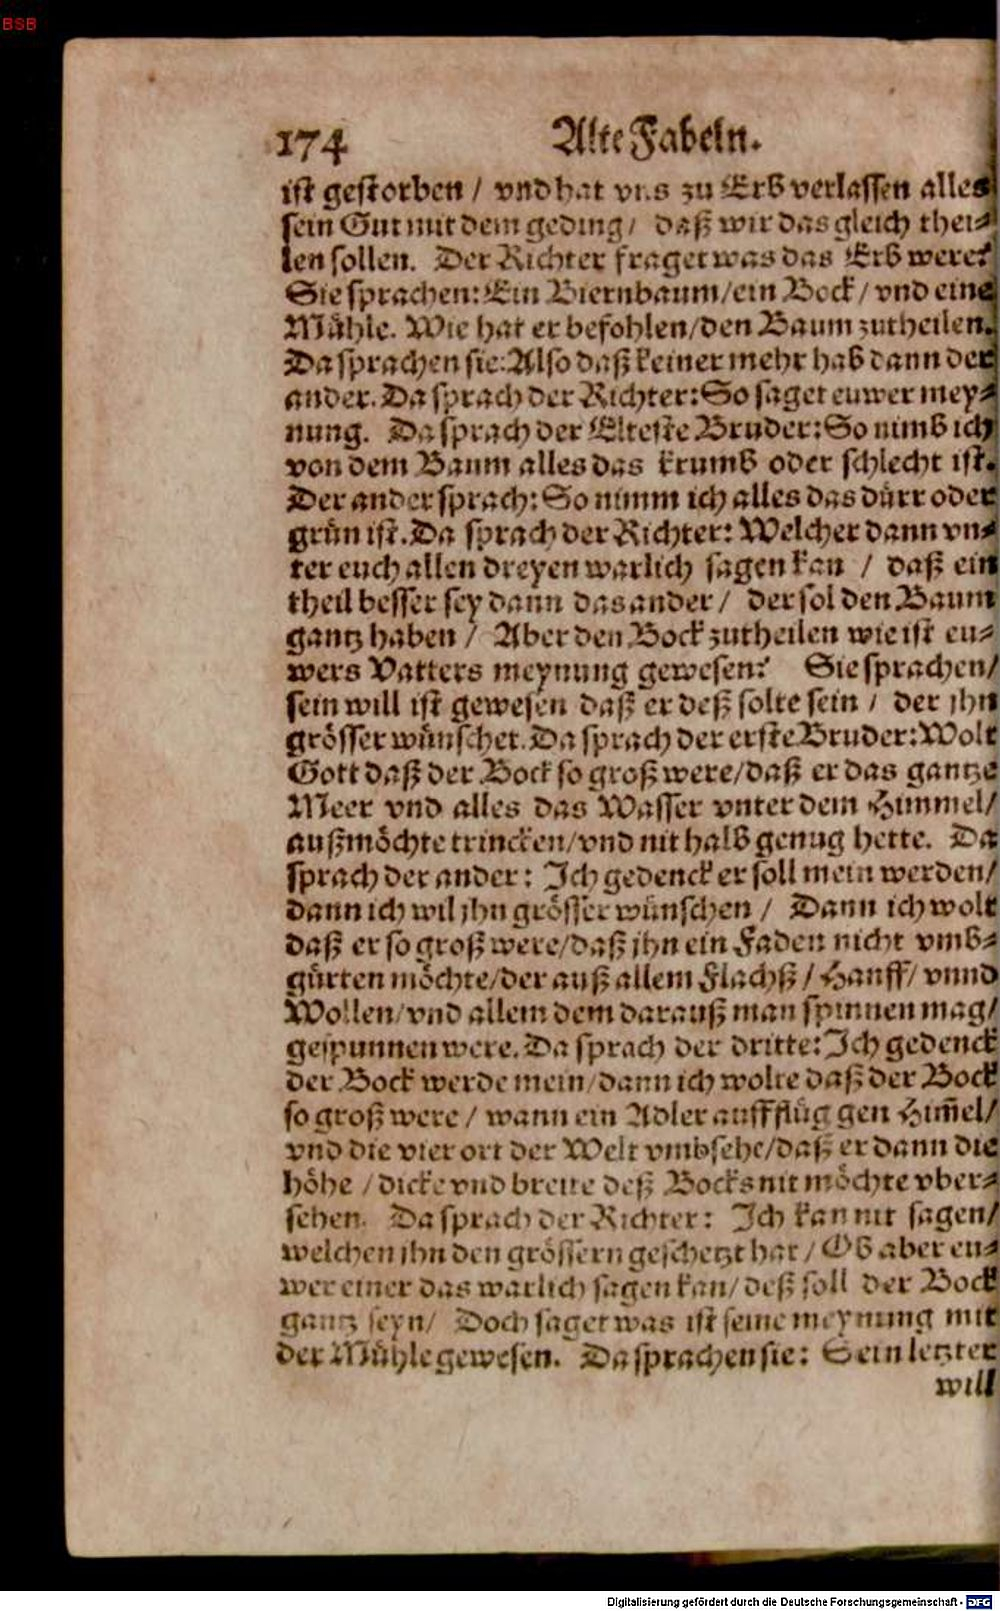 BSB
174 Alte Fabeln.
ist gestorben / vnd hat vns zu Erb verlassen alles
sein Gut mit dem geding / daß wir das gleich thei-
len sollen. Der Richter fraget was das Erb were?
Sie sprachen: Ein Biernbaum / ein Bock / vnd eine
Mühle. Wie hat er befohlen / den Baum zutheilen.
Da sprachen sie: Also daß keiner mehr hab dann der
ander. Da sprach der Richter: So saget euwer mey-
nung. Da sprach der Elteste Bruder: So nimb ich
von dem Baum alles das krumb oder schlecht ist.
Der ander sprach: So nimm ich alles das dürr oder
grün ist. Da sprach der Richter: Welcher dann vn-
ter euch allen dreyen warlich sagen kan / daß ein
theil besser sey dann das ander / der sol den Baum
gantz haben / Aber den Bock zutheilen wie ist eu-
wers Vatters meynung gewesen? Sie sprachen /
sein will ist gewesen daß er deß solte sein / der jhn
grösser wünschet. Da sprach der erste Bruder: Wolt
Gott daß der Bock so groß were / daß er das gantze
Meer vnd alles das Wasser vnter dem Himmel /
außmöchte trincken / vnd nit halb genug hette. Da
sprach der ander: Ich gedenck er soll mein werden /
dann ich wil jhn grösser wünschen / Dann ich wolt
daß er so groß were / daß jhn ein Faden nicht vmb-
gürten möchte / der auß allem Flachß / Hanff / vnnd
Wollen / vnd allem dem darauß man spinnen mag /
gespunnen were. Da sprach der dritte: Ich gedenck
der Bock werde mein / dann ich wolte daß der Bock
so groß were / wann ein Adler auffflüg gen Him̃el /
vnd die vier ort der Welt vmbsehe / daß er dann die
höhe / dicke vnd breite deß Bocks nit möchte vber-
sehen. Da sprach der Richter: Ich kan nit sagen /
welchen jhn den grössern geschetzt hat / Ob aber eu-
wer einer das warlich sagen kan / deß soll der Bock
gantz seyn / Doch saget was ist seine meynung mit
der Mühle gewesen. Da sprachen sie: Sein letzter
will
Digitalisierung gefördert durch die Deutsche Forschungsgemeinschaft - DFG